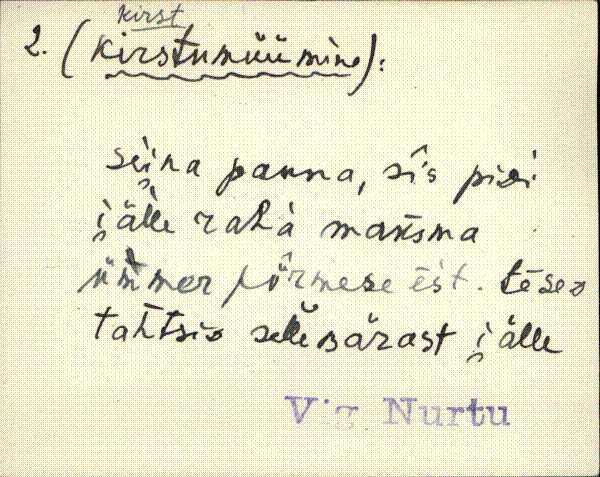 kirst
2. (kirstumüümine):
seina panna, sîs pidi
i̯älle raha maksma
ümmer põrmese ēst. tēseᴅ
tahtsiᴅ sellepärast i̯älle
Vig Nurtu